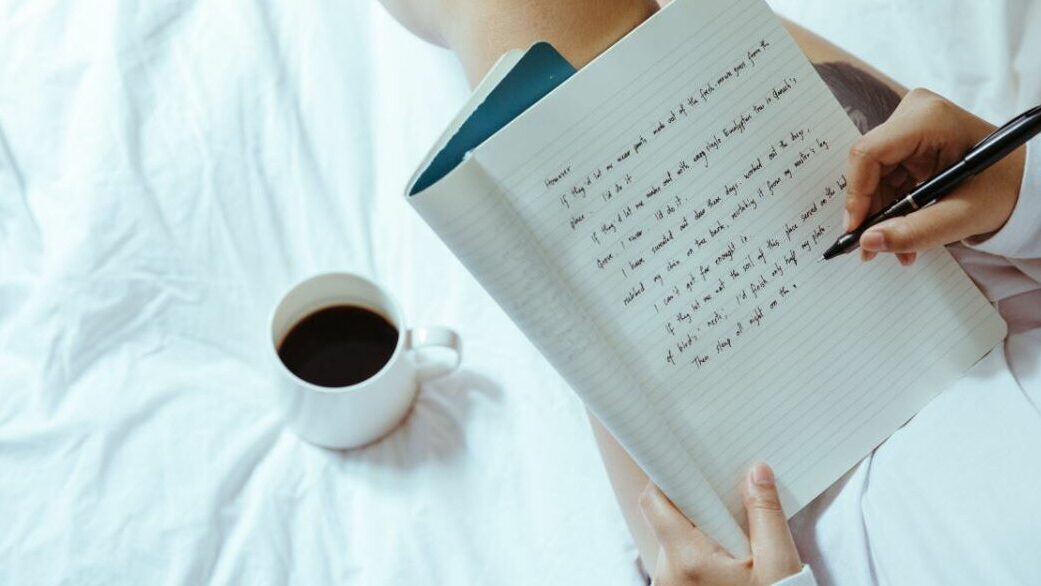 However,
If they'd let me wear pants made out of the fresh manure gross from the
place, I'd do it.
If they'd let me make out with every single Eucalyptus tree in Ganaih's,
Grove, I never I'd do it.
I have sweated out dear those days, worked out the dogs,
rubbed my chin on tree bark, mistakily it from my master's leg
I can't get far enought it.
If they let me eat the soil of this place served on the bed
of birds; nests, I'd finish only half my plate
Then sleep all night on the